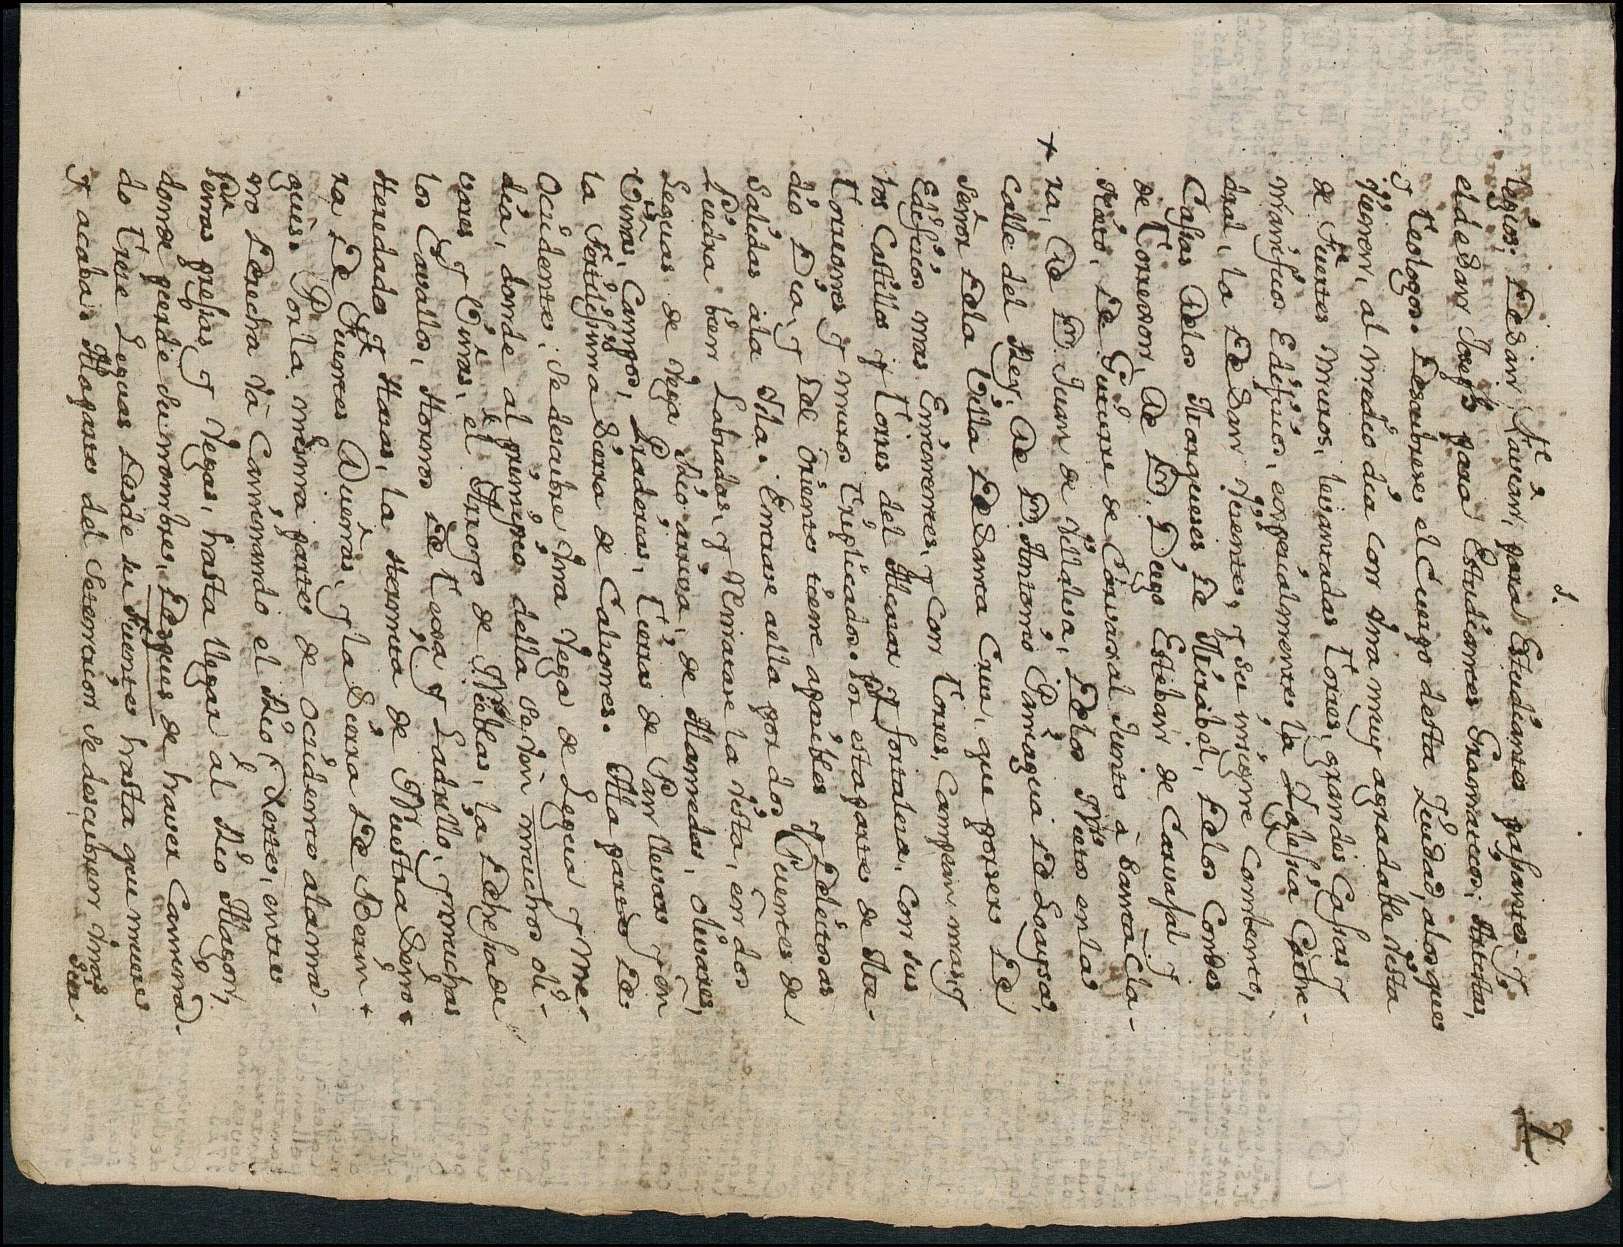 1.
7
legios; De San Fabian, para Estudiantes pasantes. Y
el de San Joseph para Estudiantes Gramaticos, Artistas,
y Teologos. Descubrese el Cuerpo desta Ciudad, a los que
vienen, al medio dia con vna muy agradable vista
de Fuertes muros, leuantadas Torres, grandes Casas y
magnificos Edificios, especialmente la Iglesia Cathe-
dral, la De San Vicente, y su insigne Combento,
Casas De los Marqueses De Mirabel, De los Condes
de Torrejon, De D. Diego Esteban de Carvajal y
Nieto, De Gutierre de Caruajal Junto à Santa Cla-
ra, De D. Juan de Villalva, De los Nietos en la
calle del Rey, De D. Antonio Paniagua De Loaysa,
Señor De la Villa De Santa Cruz, que ponen De
Edificios mas Eminentes, y con Torres, Campean mas, y
los Castillos y Torres del Alcazar y fortaleza, con sus
Torreones y muros triplicados. Por esta parte de Me-
dio Dia, y Del Oriente tiene apacibles y Deleitosas
Salidas à la Isla. Entrase a ella por dos Puentes de
Piedra bien Labradas, y Mirase la vista, en dos
Leguas de Vega Rio arriua, de Alamedas, oliuares,
Viñas, Campos, Praderias, Tierras de Pan lleuar y en
la Fertilissima Sierra de Calzones. A la parte De
Ocidente, se descubre vna Vega de Legua y Me-
dia, donde al principio della se ven muchos oli-
uares y Viñas, el Arroyo de Nieblas, la Dehesa de
los Cauallos, Hornos De Texa y Ladrillo, y muchas
Heredades y Hazas, la Hermita de Nuestra Seño-
ra De Fuentes Dueñas, y la Sierra De Beren-
guès. Por la mesma parte de ocidente a la ma-
no Derecha và Caminando el Rio, Xerte, entre
sierras peñas, y Vegas, hasta llegar al Rio Alagon,
donde pierde su nombre, Despues de hauer Camina-
do Treze Leguas desde su Fuente hasta que muere
y acaba. A la parte del Setentrion se descubren vnas
Sier-